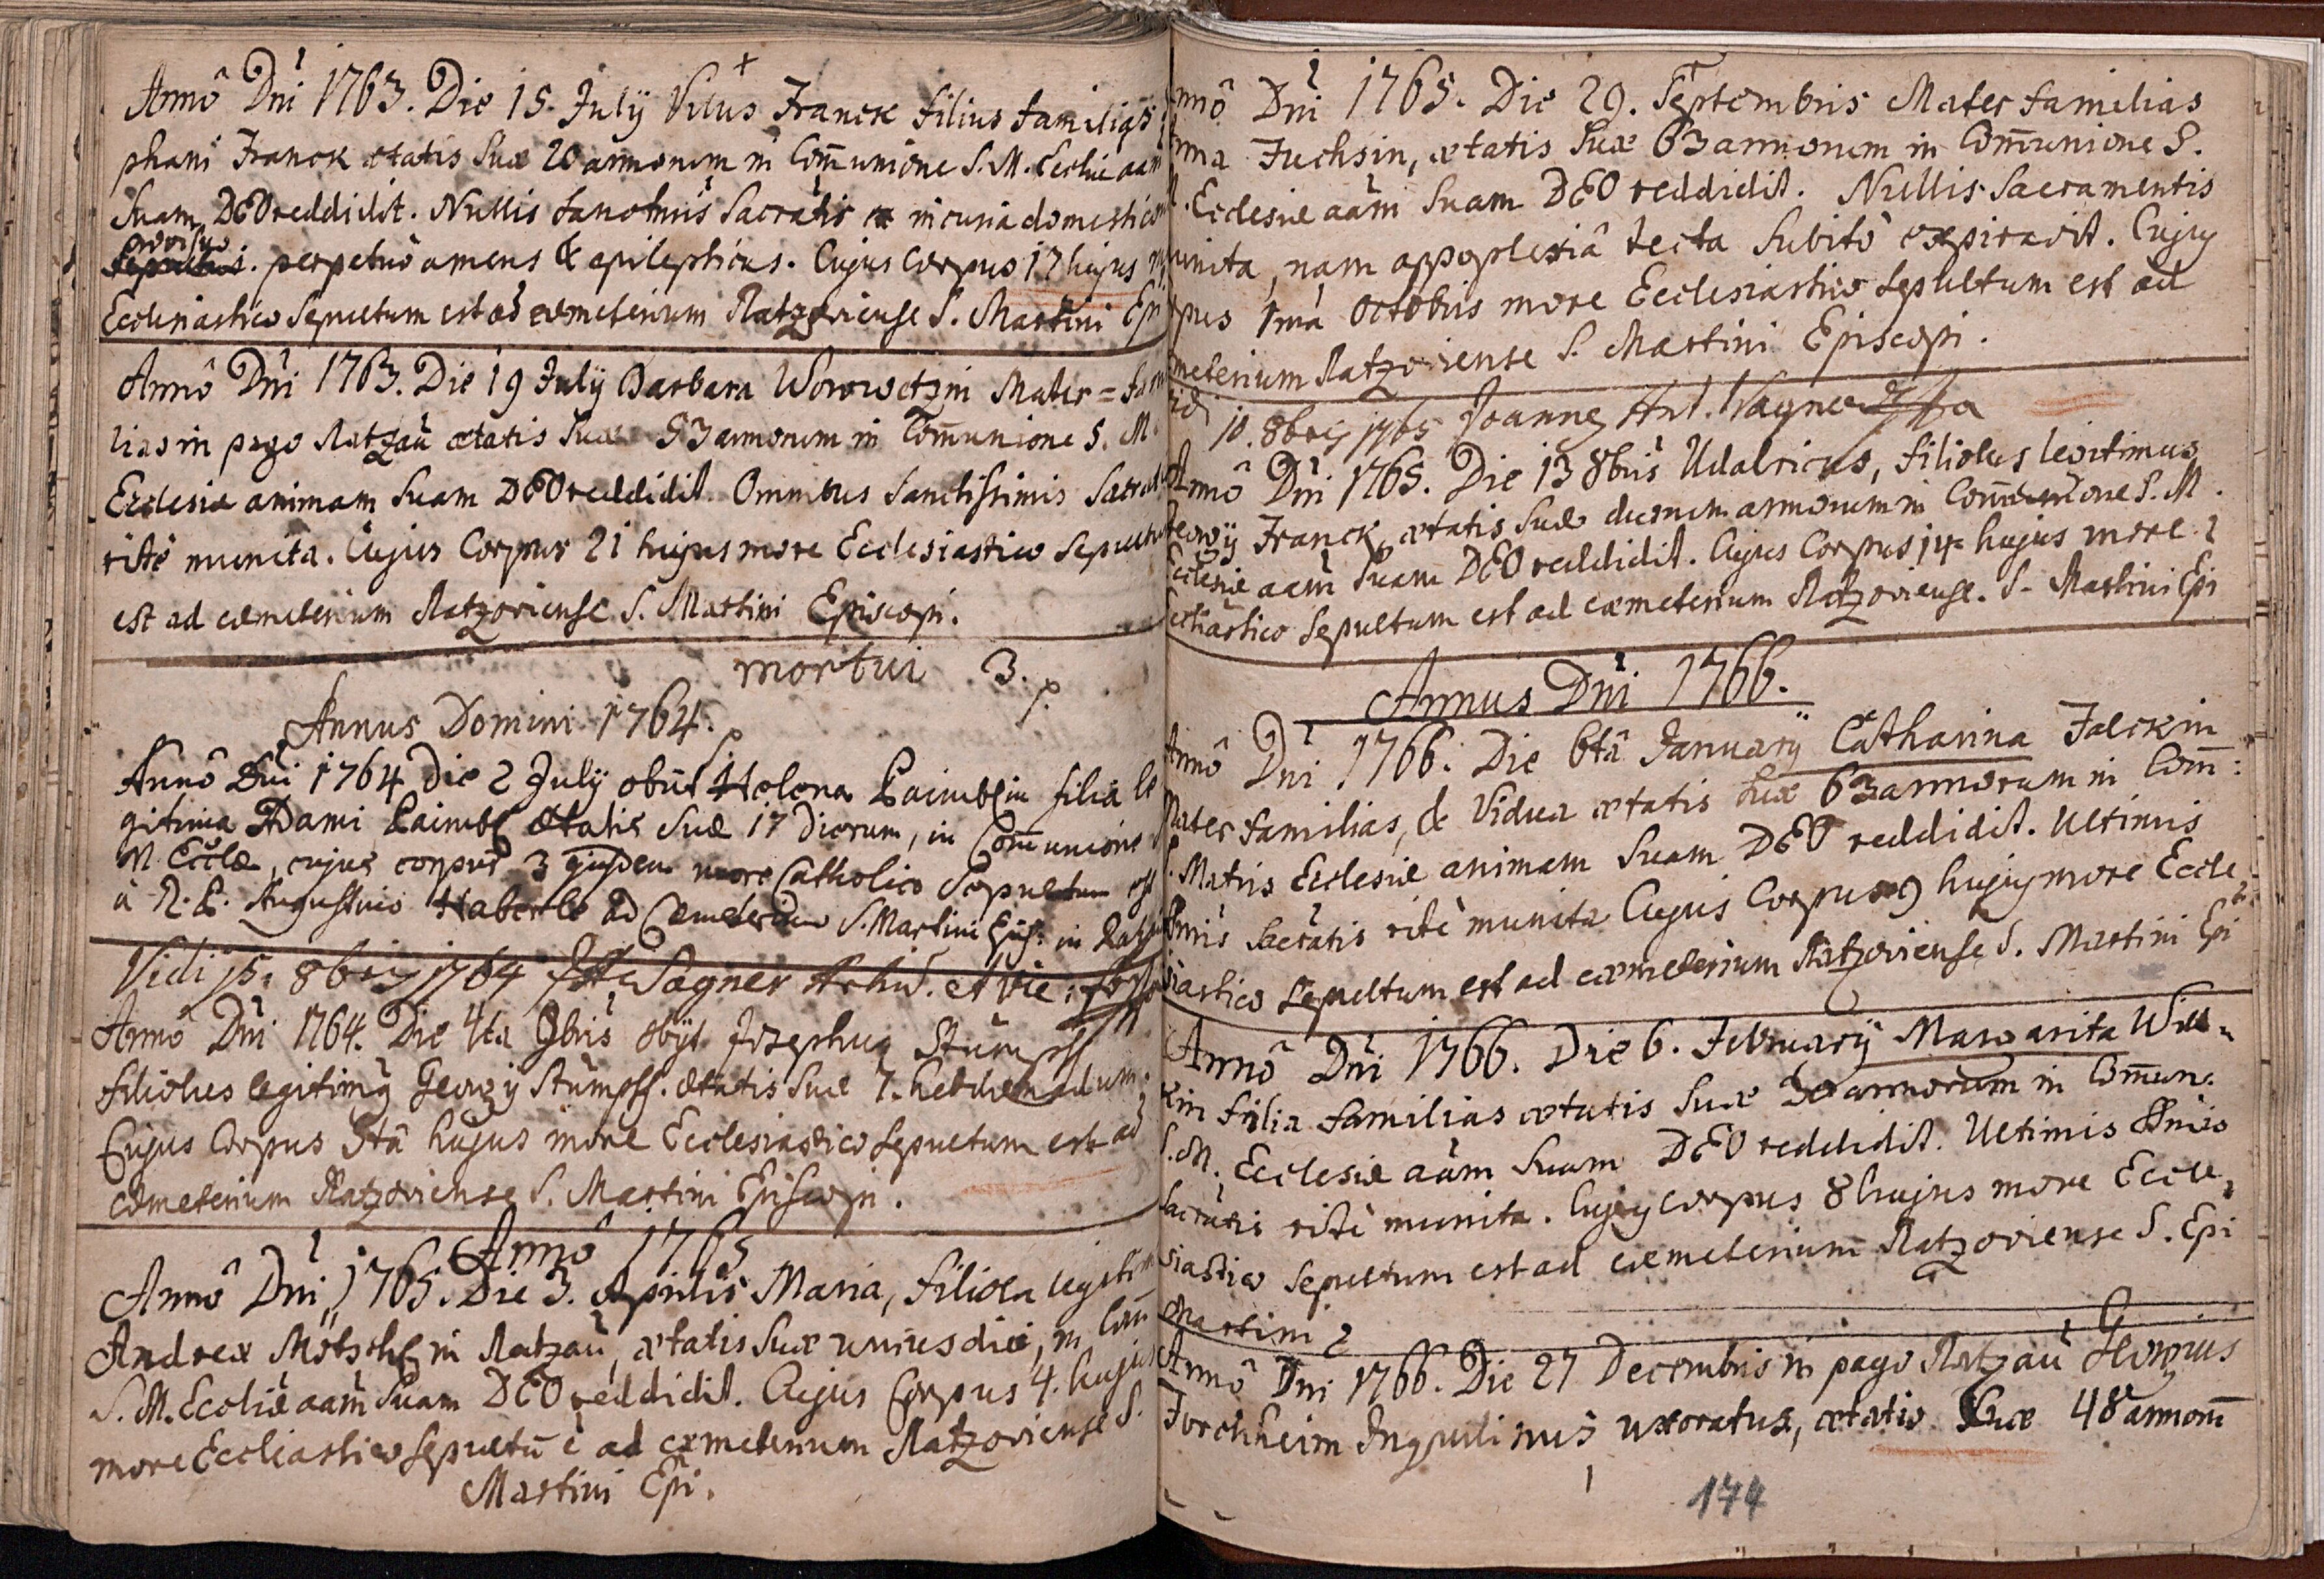 Annô Dni 1763. Die 15. Julÿ Vitus Franck filius familias
phani Franck ætatis suæ 20 annorum in Com̄unione S. M. Eccliæ aam
suam DEO reddidit. Nullis Sacratis in curia domestica
provisus
Sepultus. perpetuò amens & epilepticus. Cujus Corpus 17 hujus
Ecclesiastico sepultum est ad cœmeterium Ratzoviense S. Martini Epi
Annô Dni 1763. Die 19 Julÿ Barbara Worowetzin Mater = fam
lias in pago Ratzaŭ ætatis suæ 53 annorum in Com̄unione S. M.
Ecclesiæ animam suam DEO reddidit. Omnibus Sanctissimis Sacra
ritè munita. Cujus Corpus 21 hujus more Ecclesiastico sepultum
est ad cœmeterium Ratzoviense S. Martini Episcopi.
mortui 3.
Annus Domini 1764.
Annô Dni 1764 Die 2 Julÿ obiit Helena filia le
gitima Adami ætatis suæ 17 Dierum, in Com̄unione
M. Eccłæ, cujus corpus 3 ejusdem more Catholico Sepultum est
à R. P. Augustino Haberle ad Cœmeterium S. Martini Epis: in Ratz
Vidi 15. 8bris 1764 Wagner
Annô Dni 1764. Die 4ta 9bris obÿt Josephus Stŭmpff
filiolus legitimg Georgÿ Stŭmpff. ætatis suæ 7. hebdomadum.
Cujus Corpus 5tâ hujus more Ecclesiastico sepultum est ad
cœmeterium Ratzoviense S. Martini Episcopi.
Annô 1765
Annô Dni 1765. Die 3. Aprilis Maria, filiola legitim
Andreæ Mötschl in Ratzaŭ, ætatis suæ unius diei, in Com̄
S. M. Eccliæ aam suam DEO reddidit. Cujus Corpus 4. hujus
more Eccliastico sepultū ē ad cæmeterium Ratzoviense S.
Martini Epi.
nnô Dni 1765. Die 29. Septembris Mater familias
nna Fuchsin, ætatis suæ 63 annorum in Com̄unione S.
Ecclesiæ aam suam DEO reddidit. Nullis Sacramentis
unita, nam appoplexiâ tecta subitò expiravit. Cujus
pus 1mâ octobris more Ecclesiastico sepultum est ad
meterium Ratzoviense S. Martini Episcopi.
idi 10. 8bris 1765 Joannes Ant. Wagner
Annô Dni 1765. Die 13 8bris Udalricus, filiolus legitimus
Georgÿ Franck, ætatis suæ duorum annorum in Com̄unione S. M.
Ecclesiæ aam suam DEO reddidit. Cujus Corpus 14 hujus more
Ecclsiastico sepultum est ad cæmeterium Ratzoviense. S. Martini Epi
Annus Dni 1766.
Annô Dni 1766. Die 6tâ Januarÿ Catharina Falckin
Mater familias, & Vidua ætatis suæ 63 annorum in Com̄:
S. Matris Ecclesiæ animam suam DEO reddidit. Ultimis
Omnis Sacratis ritè munita Cujus Corpus 9 hujus more Eccle
siastico sepultum est ad cæmeterium Ratzoviense S. Martini Epi
Annô Dni 1766. Die 6. Februarÿ Margarita Wil
kin filia familias ætatis suæ 30 annorum in Com̄un:
S. M. Ecclesiæ aam suam DEO reddidit. Ultimis
Sacratis ritè munita. Cujus corpus 8 hujus more Eccle
siastico sepultum est ad cæmeterium Ratzoviense S. Epi
Martini
Annô Dni 1766. Die 27 Decembris in pago Ratzaŭ Georgius
Forchheim Inquilinus uxoratus, ætatis Suæ 48 annorū
174